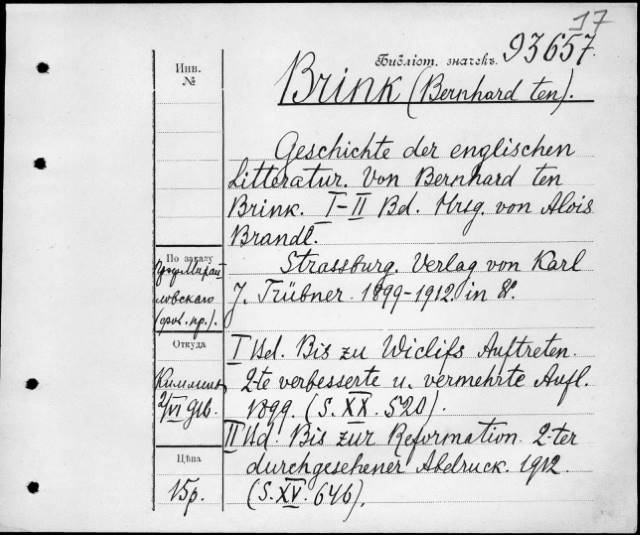 17
Библіот. значекъ. 93657.
Инв.
№
Brink (Bernhard ten).
Geschichte der englischen
Litteratur. Von Bernhard ten
Brink. I-II Bd. Hrsg. von Alois
Brandl.
Strassburg. Verlag von Karl
J. Trübner. 1899-1912. in 8º.
По заказу
ловскаго
Откуда
2/VI 916.
Цѣна
15р.
I Bd. Bis zu Wiclifs Auftreten.
2-te verbesserte u. vermehrte Aufl.
1899. (S. XX. 520).
II Bd. Bis zur Reformation. 2-ter
durchgesehener Abdruck. 1912.
(S. XV. 646).